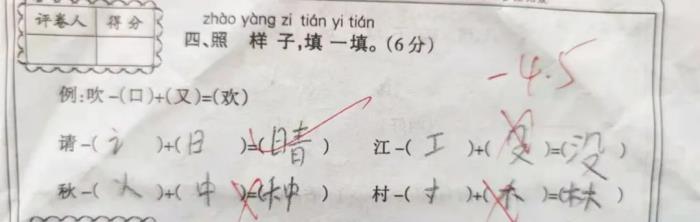 zhào yàng zi tián yi tián
评卷人 得分
四、照 样 子,填 一 填。(6分)
-4.5
例:吹-(口)+(又)=(欢)
请-(讠)+(日)=(晴) 江-(工)+(殳)=(没)
秋-(火)+(中)=(种) 村-(寸)+(木)=(林)